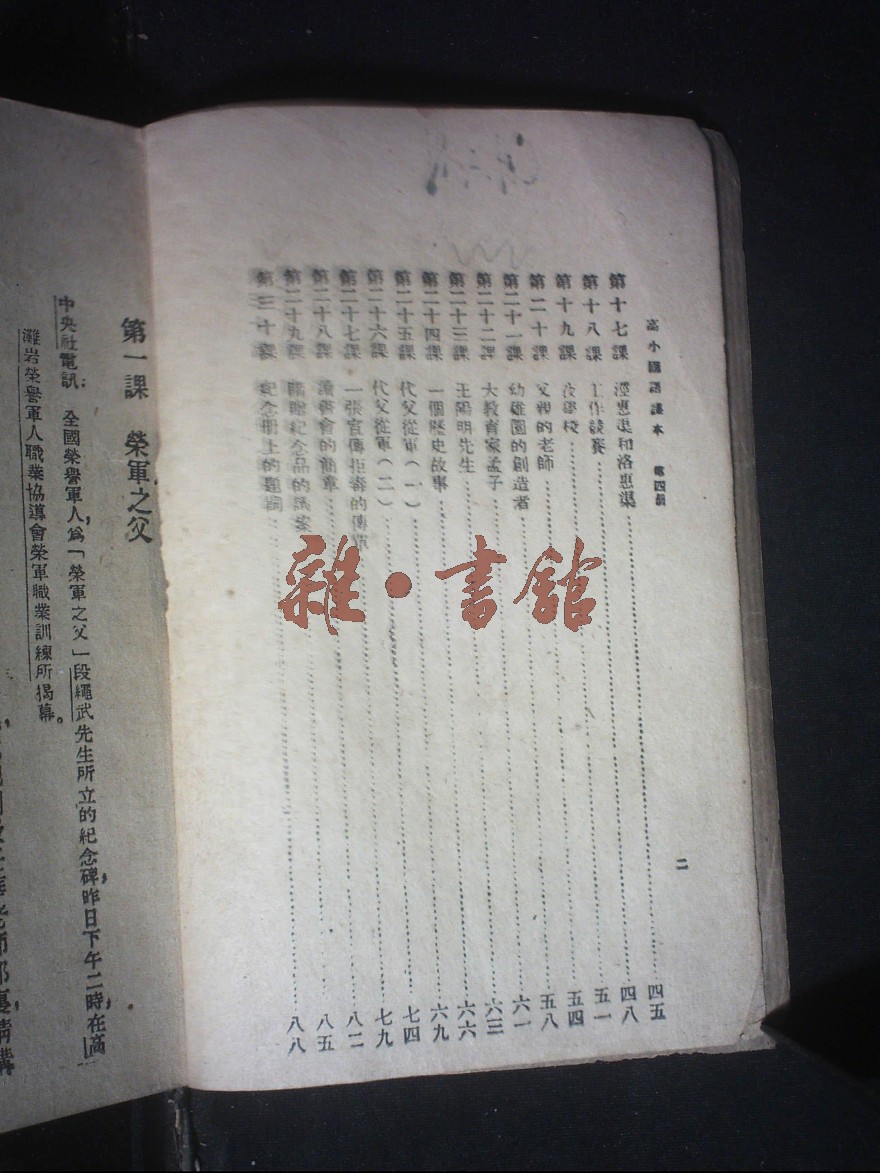 高小國語課本 第四册
二
第十七課 涇惠渠和洛惠渠……四五
第十八課 工作競賽……四八
第十九課 學校……五一
第二十課 父親的老師……五四
第二十一課 幼稚園的創造者……五八
第二十二課 大教育家孟子……六一
第二十三課 王陽明先生……六三
第二十四課 一個歷史故事……六六
第二十五課 代父從軍(一)……六九
第二十六課 代父從軍(二)……七四
第二十七課 一張宣傳拒毒的傳單……七九
第二十八課 讀書會的簡章……八二
第二十九課 紀念品的議案……八五
第三十課 紀念册上的題詞……八八
雜·書館
第一課 榮軍之父
中央社電訊:全國榮譽軍人,爲「榮軍之父」段繩武先生所立的紀念碑,昨日下午二時,在高
灘岩榮譽軍人職業協導會榮軍職業訓練所揭幕。